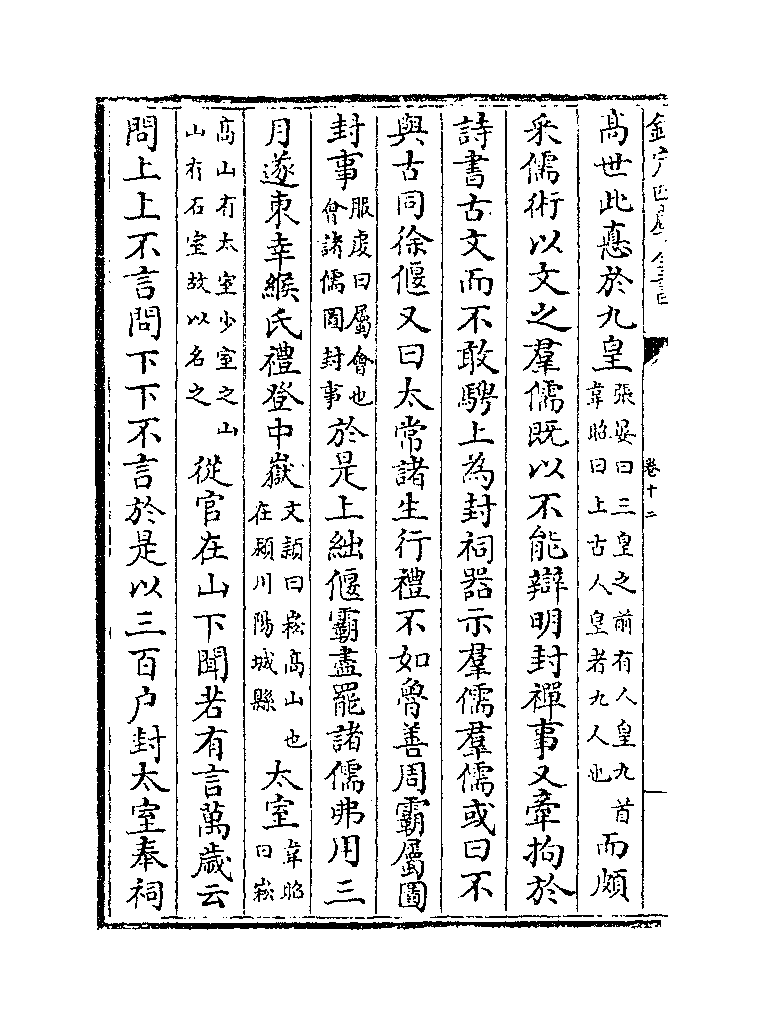 欽定四庫全書
卷十二
高世比悳於九皇張晏曰三皇之前有人皇九首韋昭曰上古人皇者九人也而頗
采儒術以文之羣儒既以不能辯明封禪事又牽拘於
詩書古文而不敢騁上為封祠器示羣儒羣儒或曰不
與古同徐偃又曰太常諸生行禮不如魯善周霸屬圖
封事服虔曰屬會也會諸儒圖封事於是上絀偃霸盡罷諸儒弗用三
月遂東幸緱氏禮登中嶽文穎曰崧高山也在潁川陽城縣太室韋昭曰崧
高山有太室少室之山山有石室故以名之從官在山下聞若有言萬歲云
問上上不言問下下不言於是以三百户封太室奉祠